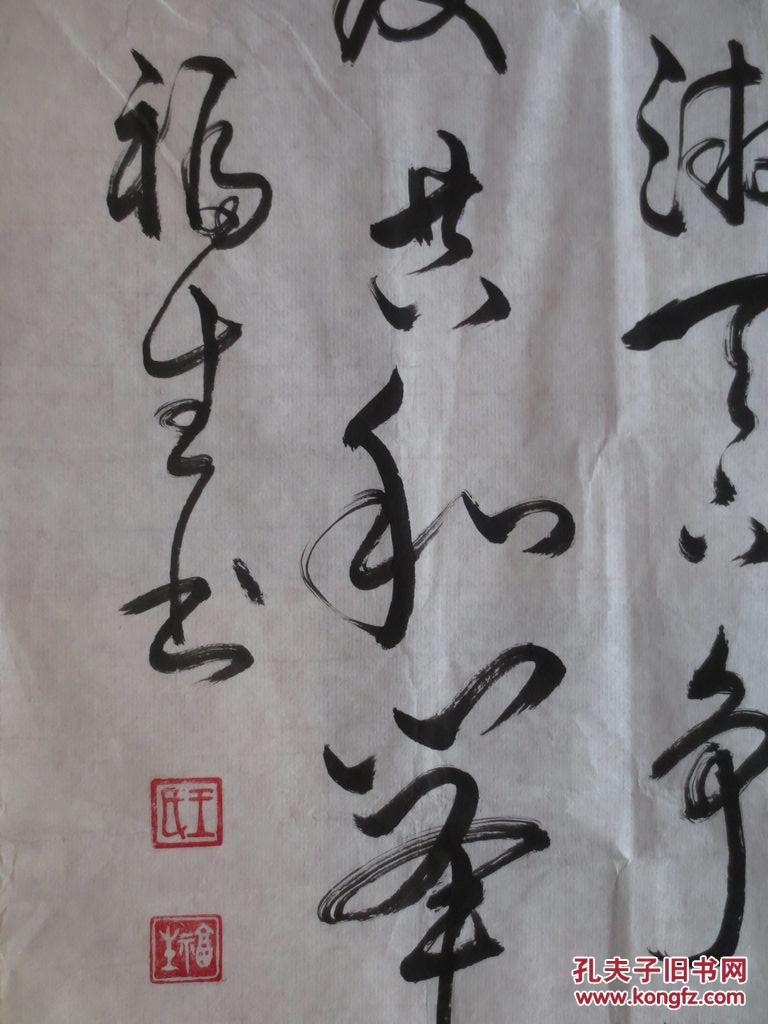 天下争
共和
福生书
王氏
福生
孔夫子旧书网
www.kongfz.com